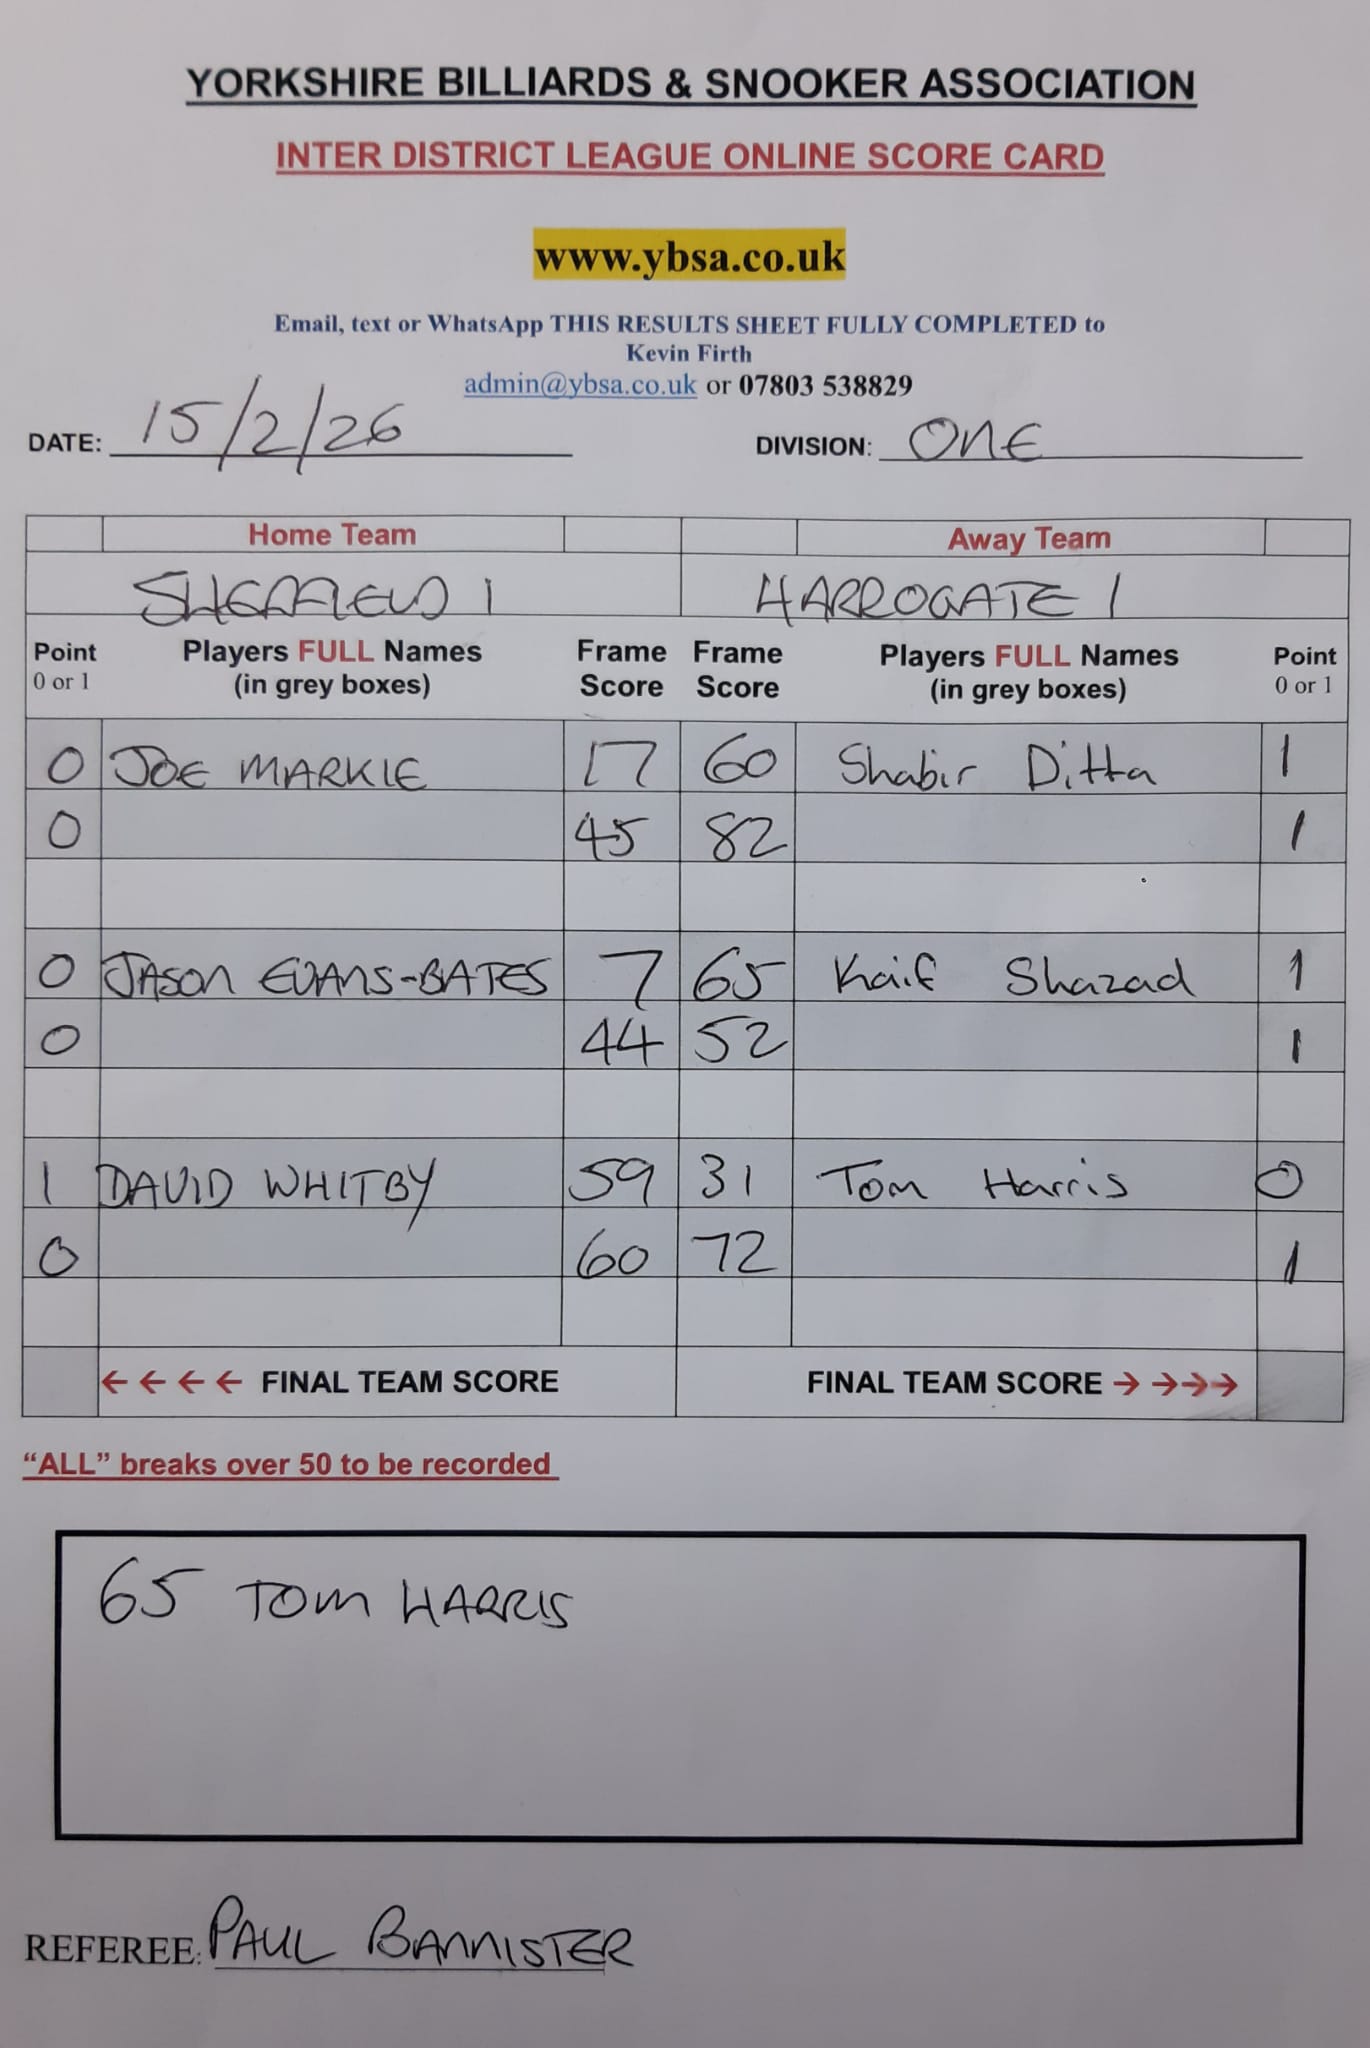 YORKSHIRE BILLIARDS & SNOOKER ASSOCIATION
INTER DISTRICT LEAGUE ONLINE SCORE CARD
www.ybsa.co.uk
Email, text or WhatsApp THIS RESULTS SHEET FULLY COMPLETED to
Kevin Firth
admin@ybsa.co.uk or 07803 538829
DATE: 15/2/26 DIVISION: ONE
Home Team Away Team
SHEFFIELD 1 HARROGATE 1
Point Players FULL Names Frame Frame Players FULL Names Point
0 or 1 (in grey boxes) Score Score (in grey boxes) 0 or 1
0 JOE MARKIE 17 60 Shabir Ditta 1
0 45 82 1
0 JASON EVANS-BATES 7 65 Kaif Shazad 1
0 44 52 1
1 DAVID WHITBY 59 31 Tom Harris 0
0 60 72 1
← ← ← ← FINAL TEAM SCORE FINAL TEAM SCORE → →→→
“ALL” breaks over 50 to be recorded
65 TOM HARRIS
REFEREE: PAUL BANNISTER